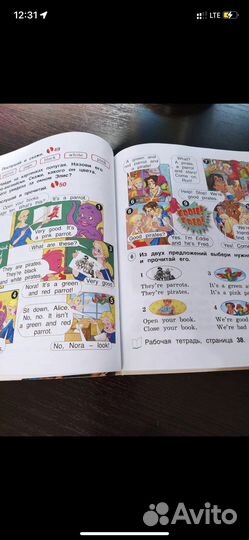 12:31
LTE
Послушай и скажи. 49
на картинках попугая. Назови его
Скажи, какого он цвета.
за окном Элис?
black
white
pink
и прочитай 50
Open your books.
What's this?
It's a parrot.
Very good. It's
a pink parrot.
What are these?
They are pirates.
They're black
and white pirates.
Very good.
Nora! It's a green
and red parrot!
Sit down, Alice.
No, no. It isn't
a green and red
parrot!
No, Nora – look!
A green and
red parrot and
a pirate!
What?
A pirate
and
Come on,
Help! Stop!
We're good
Good pirates?
Yes. I'm Eddie
and he's Fred.
Yes! Come
6 Из двух предложений выбери нужное
и прочитай его.
1
They're parrots.
They're pirates.
2
Open your book.
Close your book.
3
It's a green
It's a pink
4
We're good
We're bad
Рабочая тетрадь, страница 38.
Avito